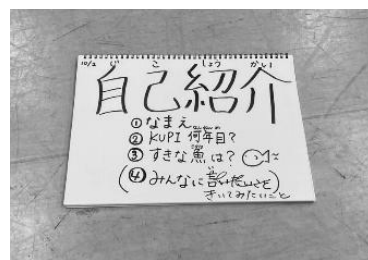 10/2 じ こ しょう かい
自己紹介
①なまえ
② KUPI 何年目?
③ すきな魚は?
(④ みんなに
きいてみたいこと)